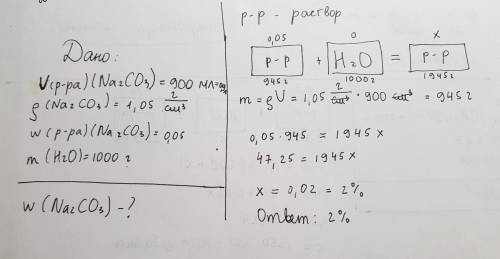 Дано:
V(р-ра)(Na₂CO₃) = 900 мл
ρ(Na₂CO₃) = 1,05 г/см³
w(р-ра)(Na₂CO₃) = 0,05
m(H₂O) = 1000 г
w(Na₂CO₃) - ?
р-р - раствор
0,05 0 x
р-р + H₂O = р-р
945 г 1000 г 1945 г
m = ρV = 1,05 г/см³ · 900 см³ = 945 г
0,05 · 945 = 1945 x
47,25 = 1945 x
x = 0,02 = 2%
Ответ: 2%